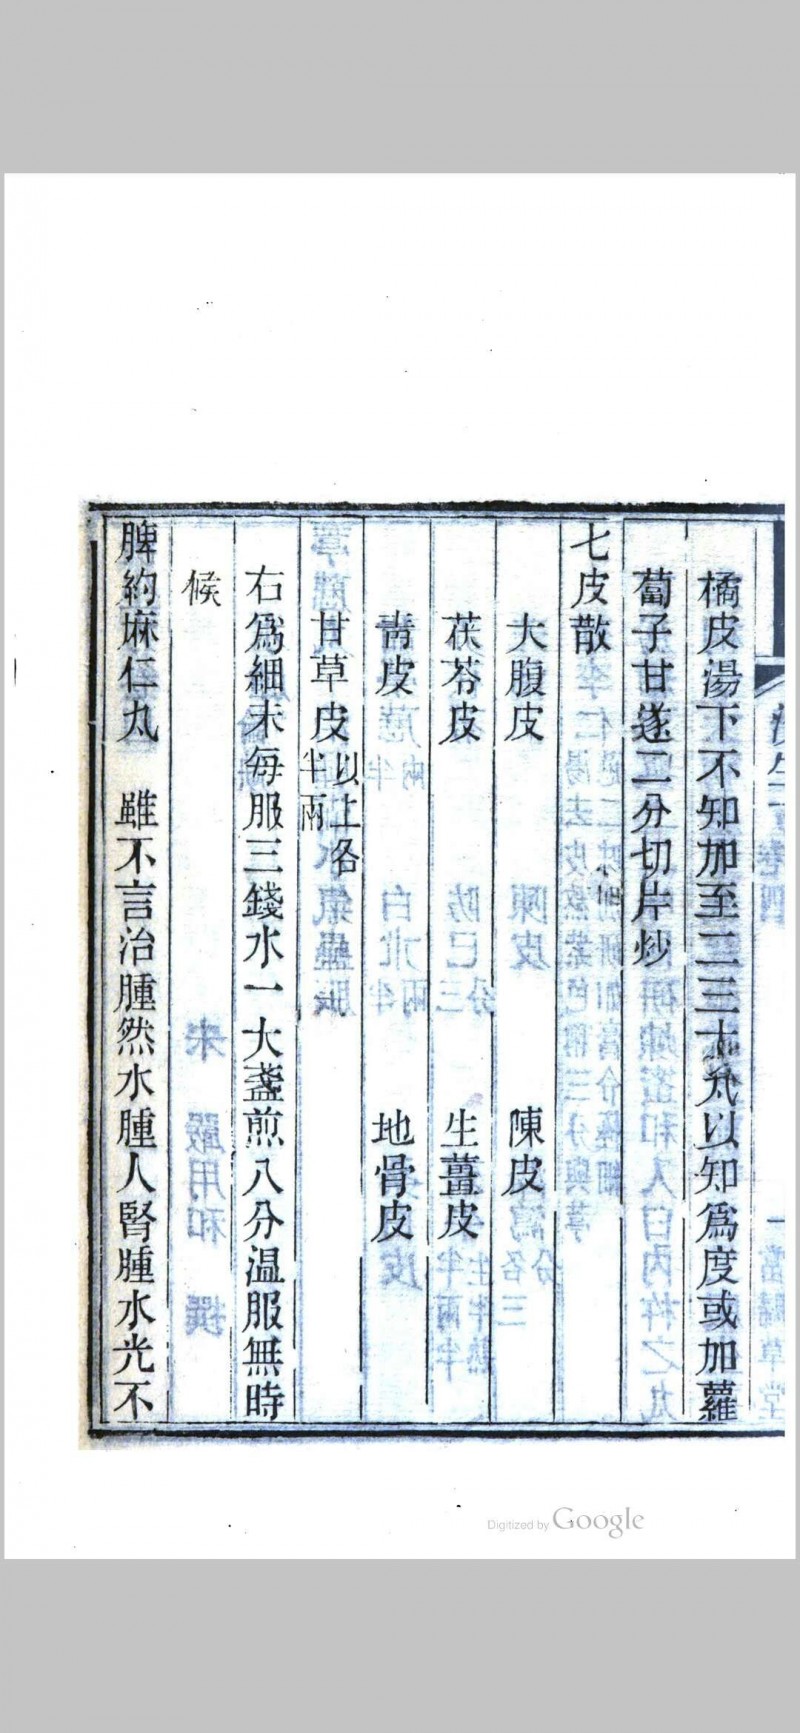 橘皮湯下不知加至二三十丸以知爲度或加蘿
蔔子甘遂二分切片炒
七皮散
大腹皮 陳皮
茯苓皮 生薑皮
靑皮 地骨皮
甘草皮以上各半兩
右爲細末每服三錢水一大盞煎八分温服無時
候
脾約麻仁丸 雖不言治腫然水腫人腎腫水光不
Digitized by Google